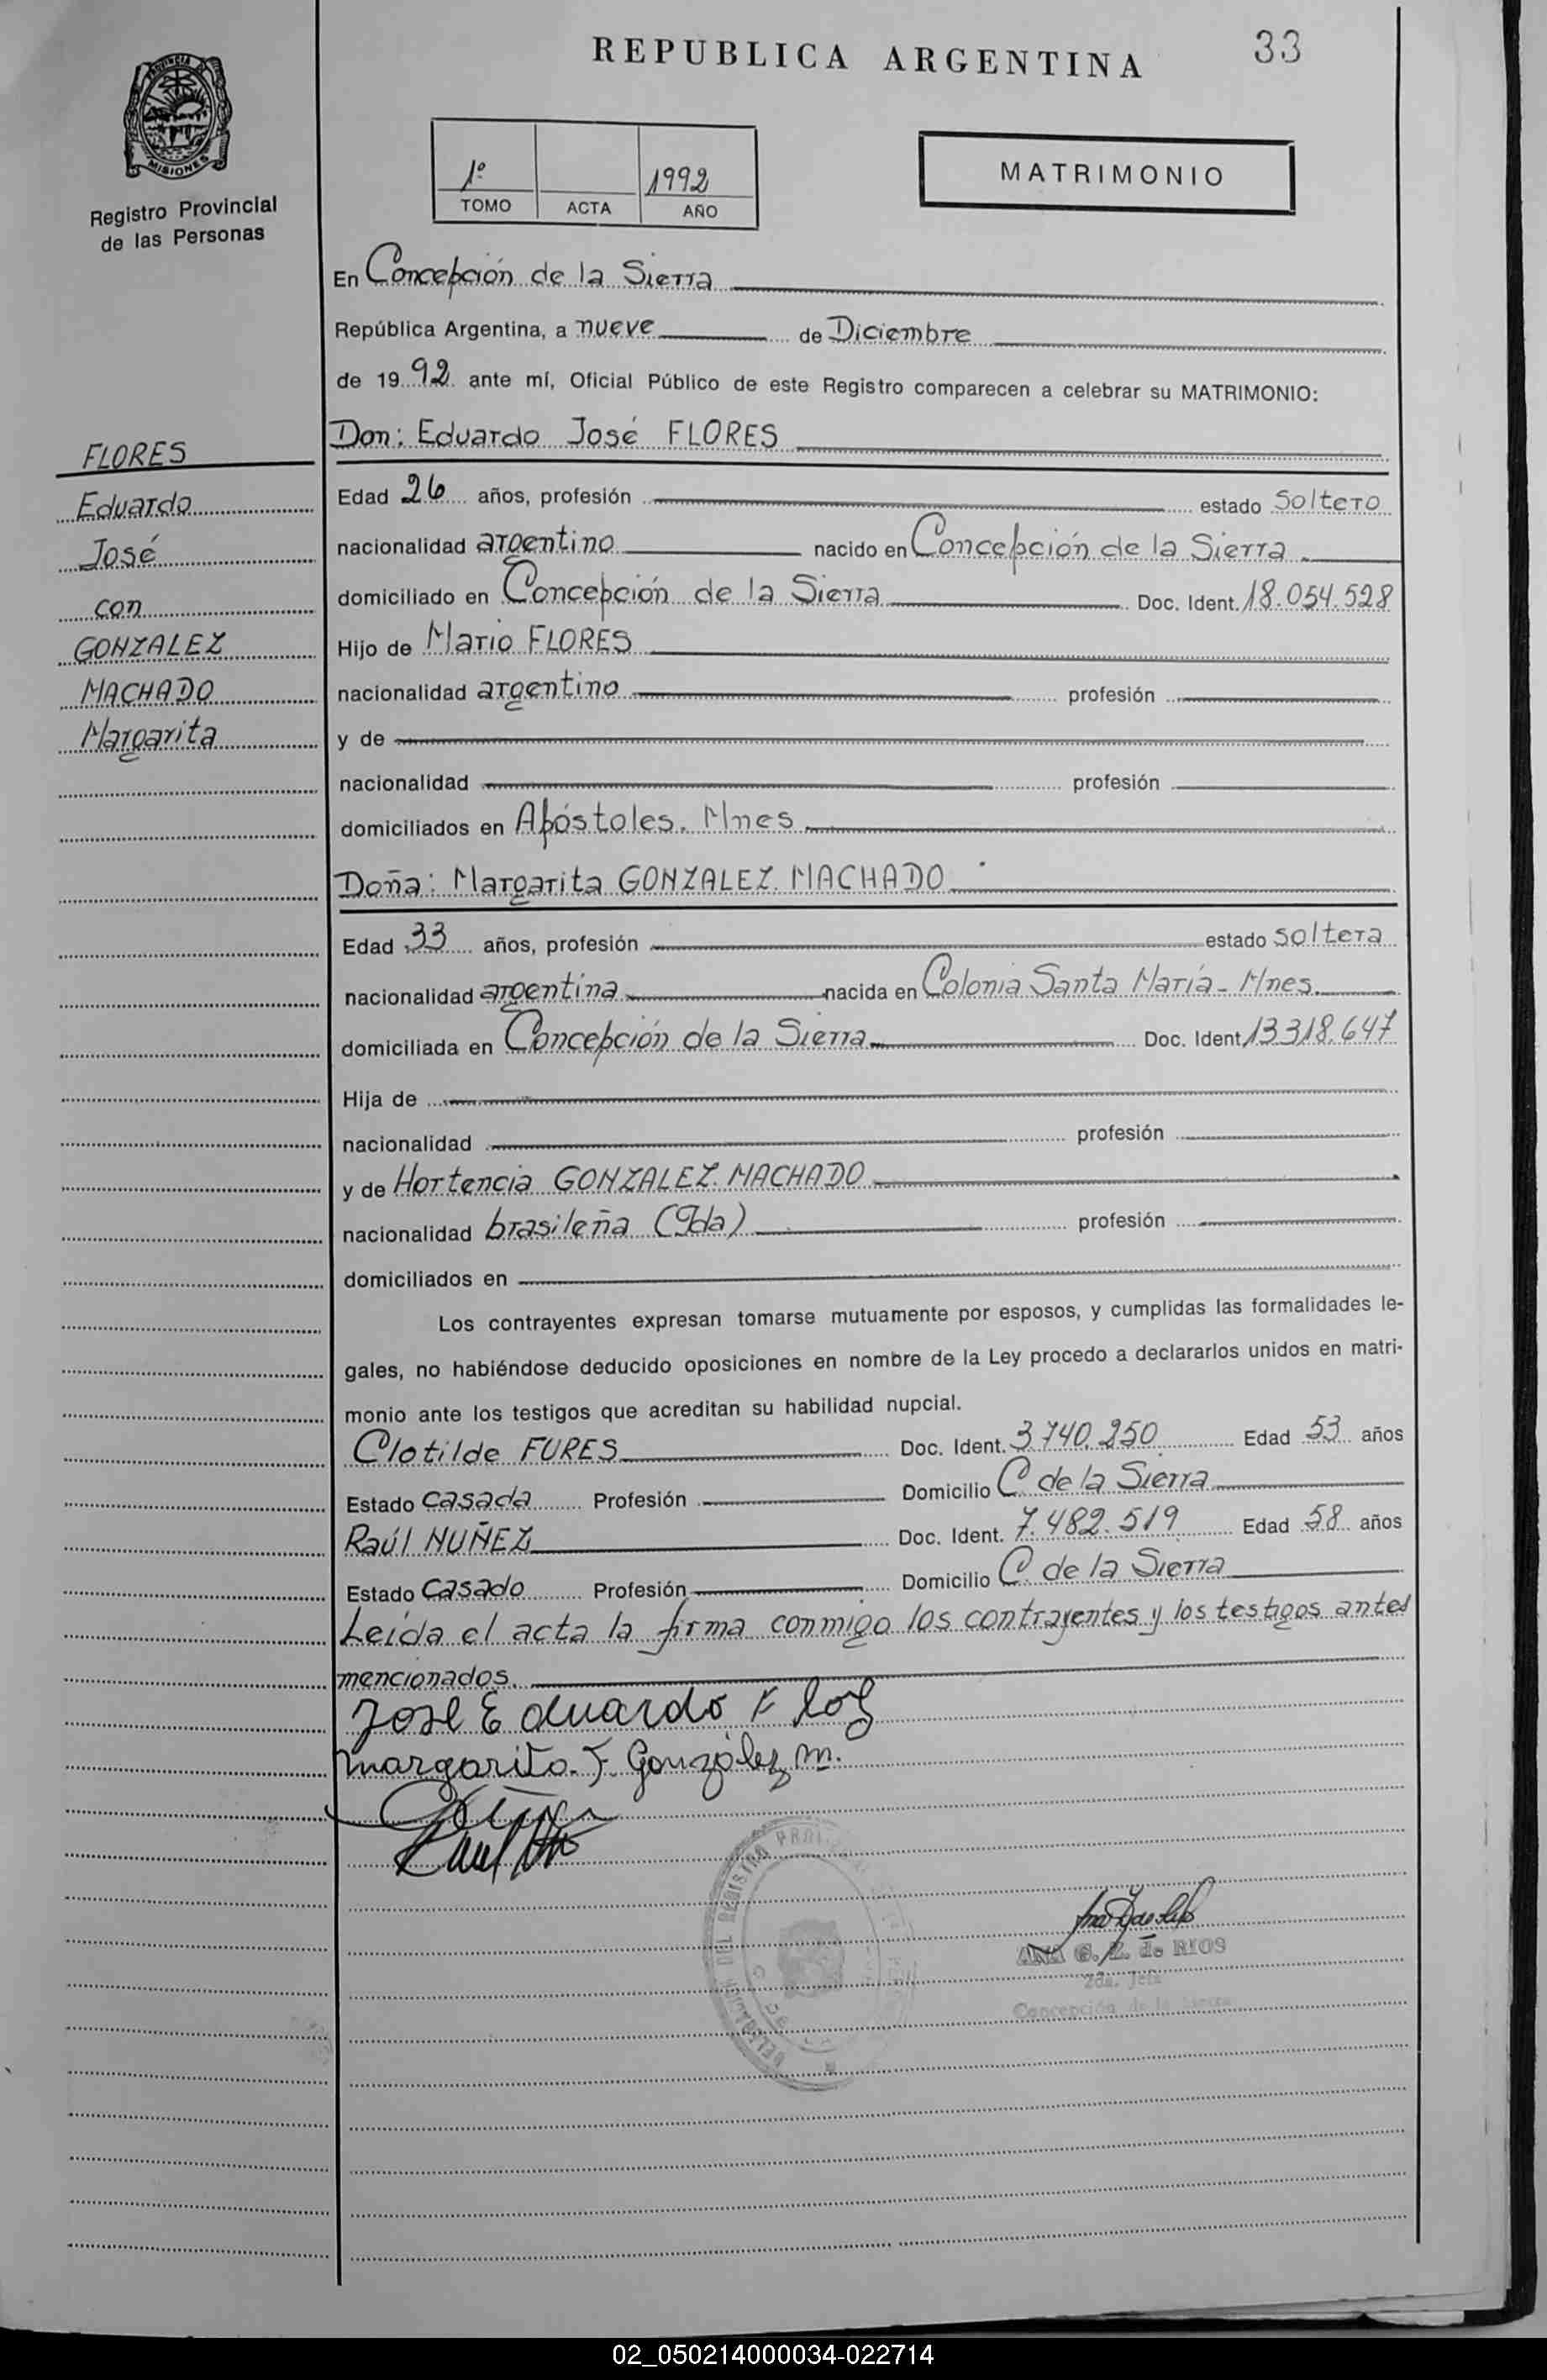 REPUBLICA ARGENTINA
33
PROVINCIA DE
MISIONES
Registro Provincial
de las Personas
1º
1992
TOMO ACTA AÑO
MATRIMONIO
En Concepción de la Sierra
República Argentina, a nueve de Diciembre
de 1992 ante mí, Oficial Público de este Registro comparecen a celebrar su MATRIMONIO:
FLORES
Eduardo
José
con
GONZALEZ
MACHADO
Margarita
Don: Eduardo José FLORES
Edad 26 años, profesión estado soltero
nacionalidad argentino nacido en Concepción de la Sierra
domiciliado en Concepción de la Sierra Doc. Ident. 18.054.528
Hijo de Mario FLORES
nacionalidad argentino profesión
y de
nacionalidad profesión
domiciliados en Apóstoles. Mnes
Doña: Margarita GONZALEZ MACHADO
Edad 33 años, profesión estado soltera
nacionalidad argentina nacida en Colonia Santa María - Mnes.
domiciliada en Concepción de la Sierra Doc. Ident. 13318.647
Hija de
nacionalidad profesión
y de Hortencia GONZALEZ MACHADO
nacionalidad brasileña (gda) profesión
domiciliados en
Los contrayentes expresan tomarse mutuamente por esposos, y cumplidas las formalidades le-
gales, no habiéndose deducido oposiciones en nombre de la Ley procedo a declararlos unidos en matri-
monio ante los testigos que acreditan su habilidad nupcial.
Clotilde FURES Doc. Ident. 3.740.250 Edad 53 años
Estado Casada Profesión Domicilio C de la Sierra
Raúl NUÑEZ Doc. Ident. 7.482.519 Edad 58 años
Estado Casado Profesión Domicilio C de la Sierra
Leída el acta la firma conmigo los contrayentes y los testigos antes
mencionados.
José Eduardo Flores
margarita. F. González m.
ANA G. Z. de RIOS
2da. Jefa
Concepción de la Sierra
02_050214000034-022714